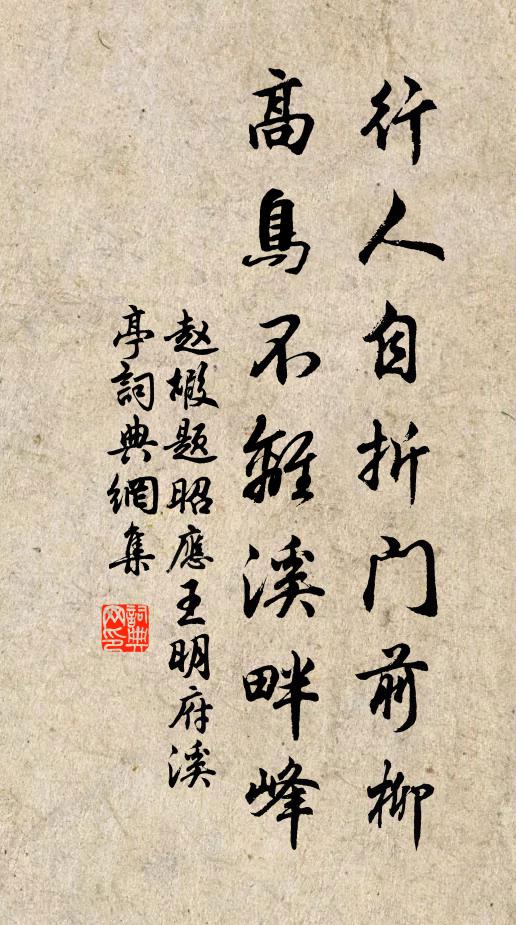 行人自折門前柳
高鳥不離溪畔峰
赵嘏题昭應王明府溪
亭詞典網集
詞典網印